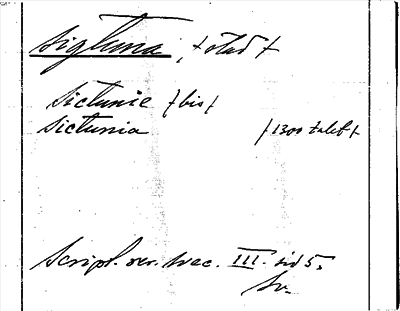 Sigtuna, /stad/
Sictunie /bis/
Sictunia /1300 talet/
Script. rer. svec. III. sid 5,
Sv.